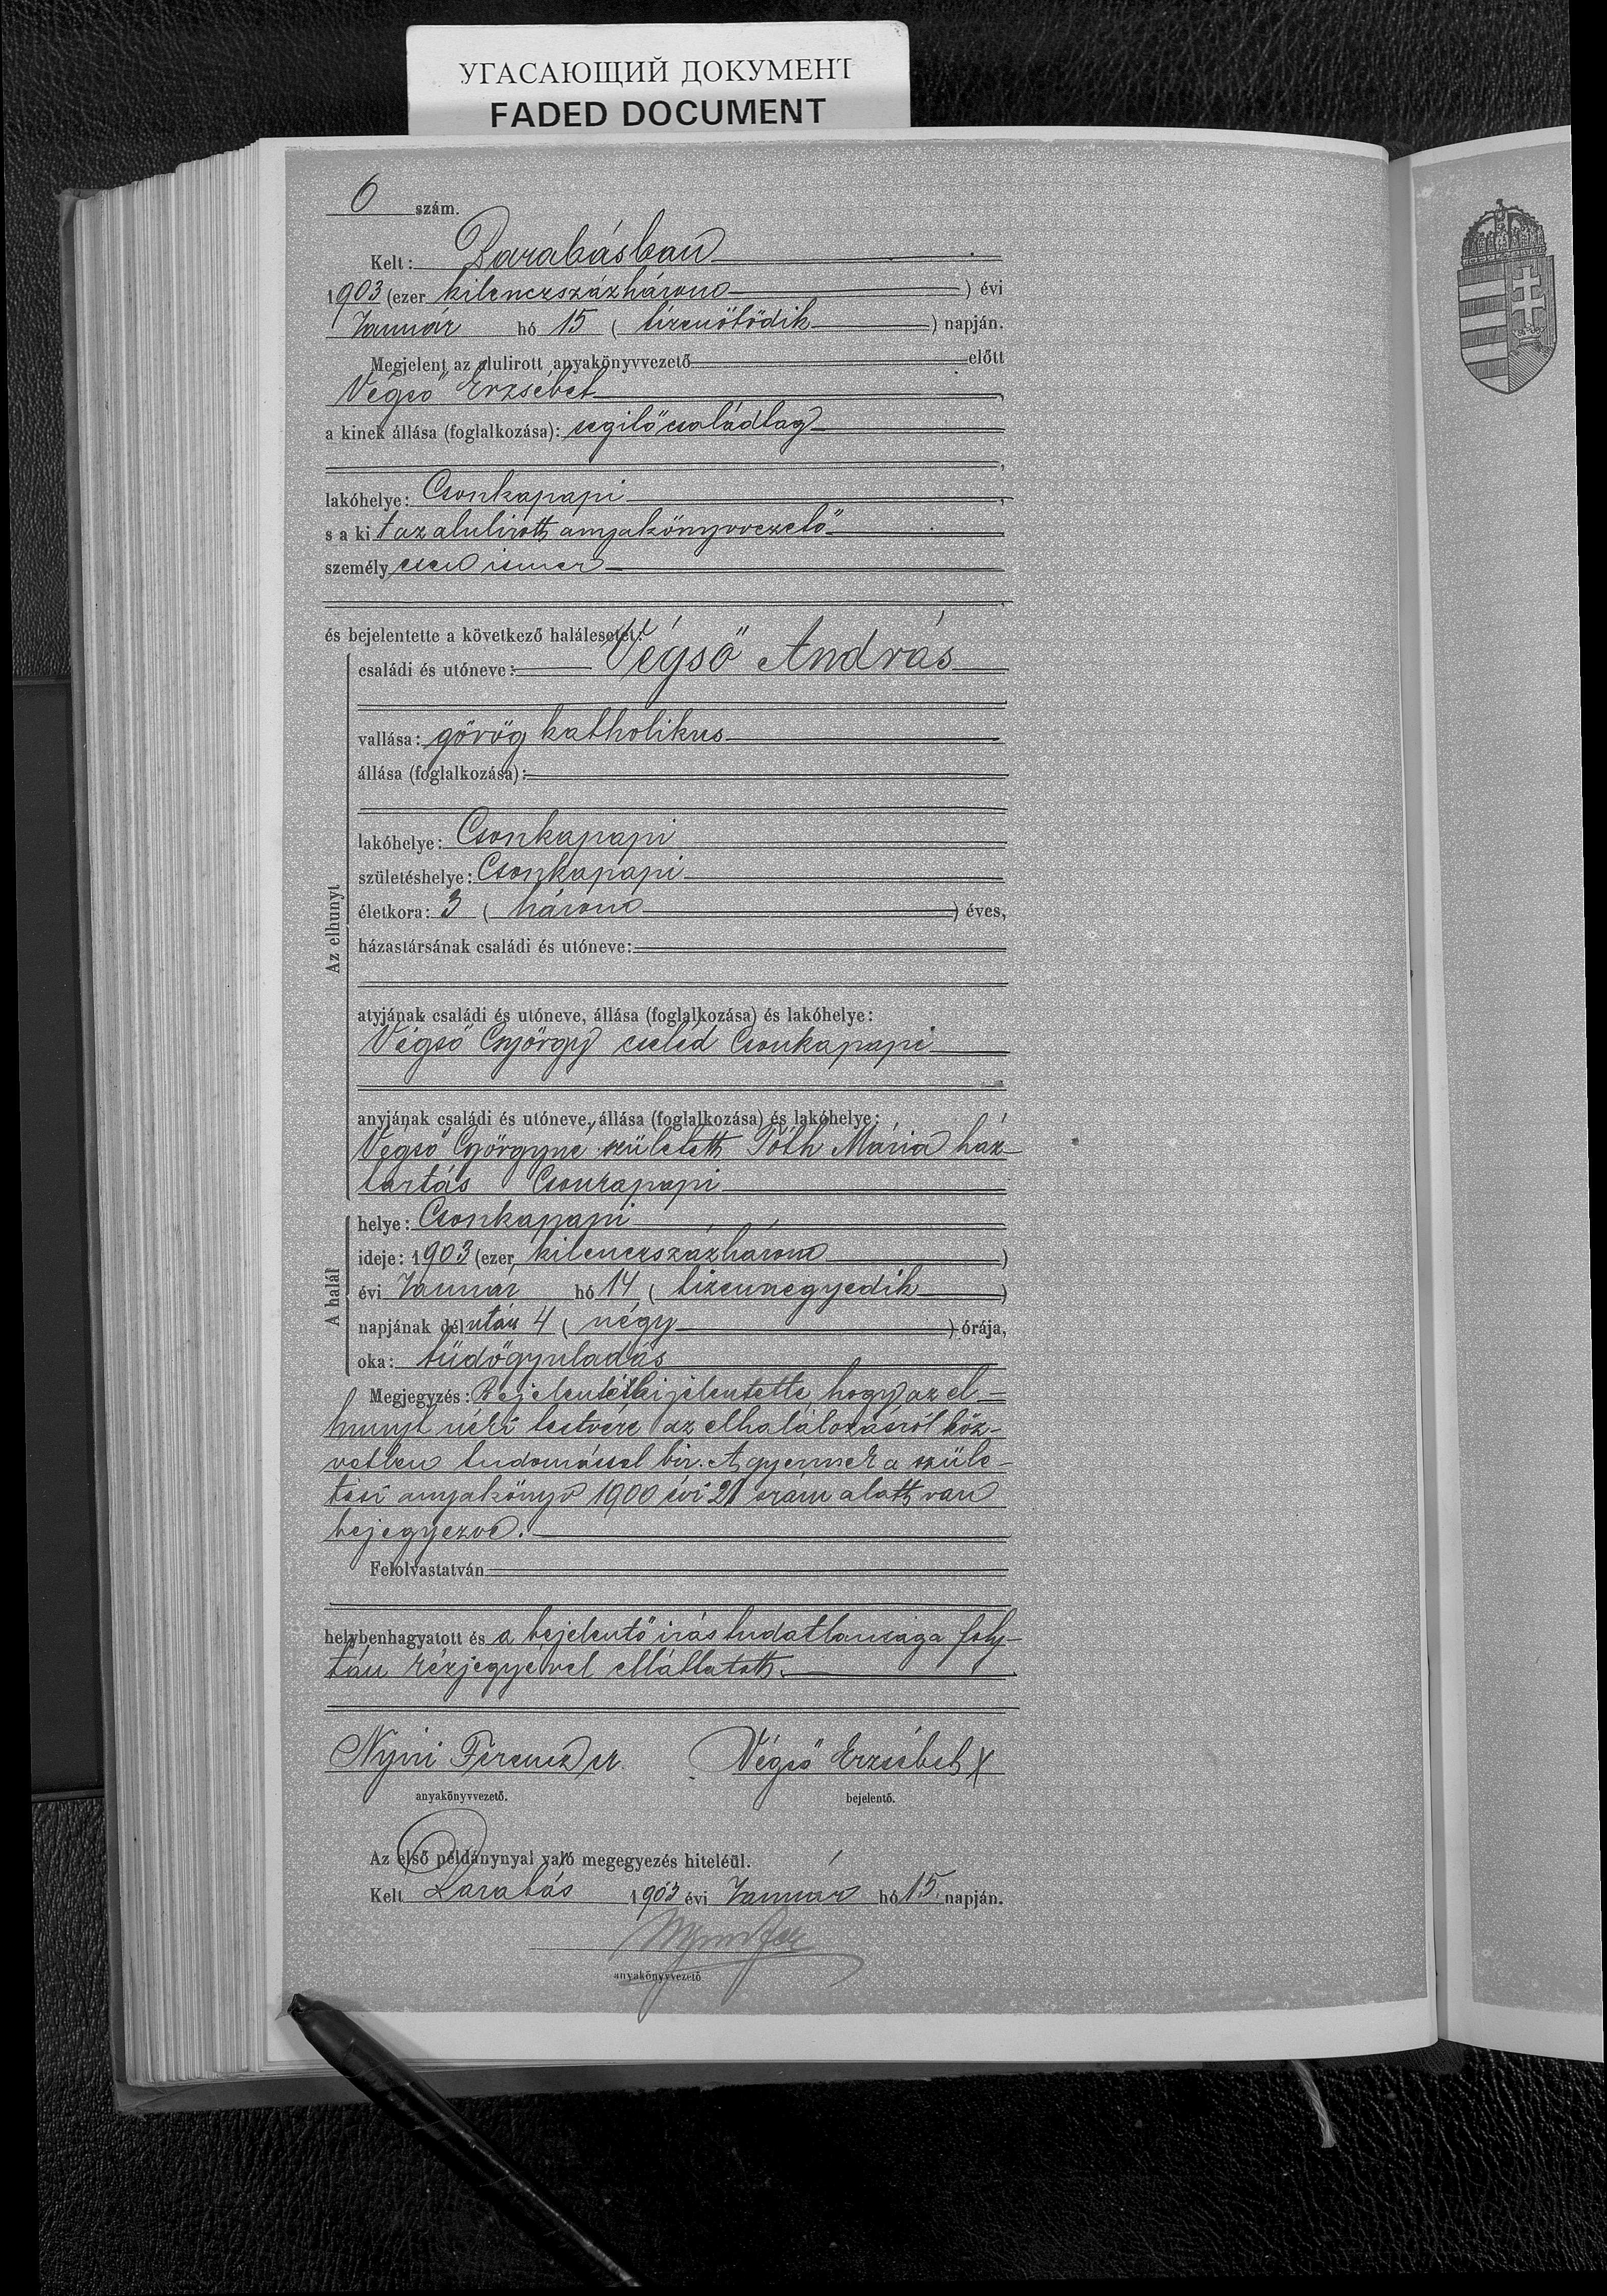 УГАСАЮЩИЙ ДОКУМЕНТ
FADED DOCUMENT
6 szám.
Kelt: Barabásban
1903 (ezer kilenczszázhárom) évi
Január hó 15 (tizenötödik) napján.
Megjelent az alulirott anyakönyvvezető előtt
Végső Erzsébet,
a kinek állása (foglalkozása): segitő családtag
lakóhelye: Csonkapapi,
s a kit az alulirott anyakönyvvezető
személyesen ismer
és bejelentette a következő halálesetet:
Az elhunyt
családi és utóneve: Végső András
vallása: görög katholikus
állása (foglalkozása):
lakóhelye: Csonkapapi
születéshelye: Csonkapapi
életkora: 3 (három) éves,
házastársának családi és utóneve:
atyjának családi és utóneve, állása (foglalkozása) és lakóhelye:
Végső György cseléd Csonkapapi
anyjának családi és utóneve, állása (foglalkozása) és lakóhelye:
Végső Györgyné született Tóth Mária ház-
tartás Csonkapapi
A halál
helye: Csonkapapi
ideje: 1903 (ezer kilenczszázhárom)
évi Január hó 14 (tizennegyedik)
napjának délután 4 (négy) órája,
oka: tüdőgyuladás
Megjegyzés: Bejelentő kijelentette, hogy az el-
hunyt néki testvére az elhalálozásról köz-
vetlen tudomással bir. A gyermek a szüle-
tési anyakönyv 1900 évi 21 szám alatt van
bejegyezve.
Felolvastatván
helybenhagyatott és a bejelentő irástudatlansága foly-
tán kézjegyével elláttatott.
Nyiri Ferencz Végső Erzsébet X
anyakönyvvezető. bejelentő.
Az első példánynyal való megegyezés hiteléül.
Kelt Barabás 1903 évi Január hó 15. napján.
anyakönyvvezető